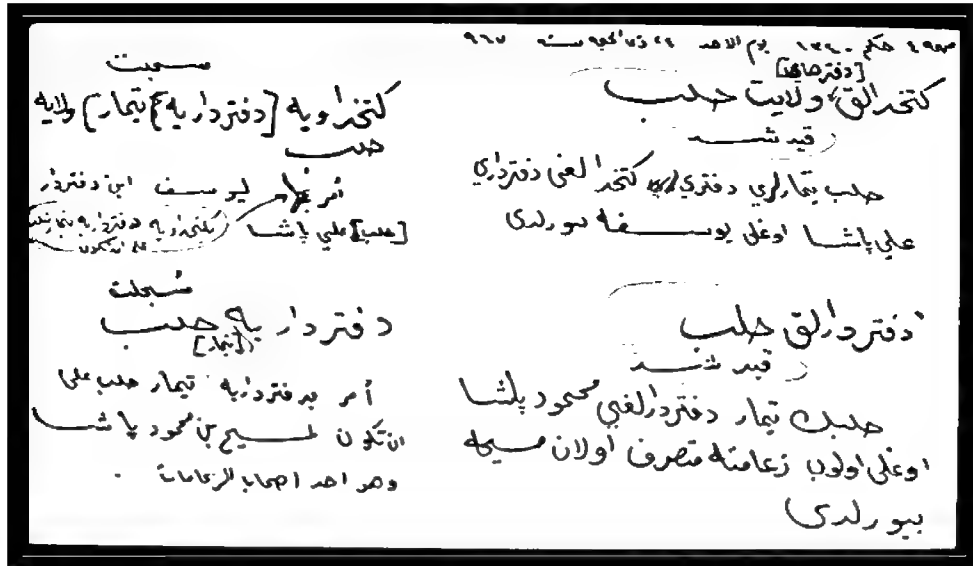 ص ٤٩ حكم ١٣٤٠ يوم الاحد ٢٤ ذى الحجه سنه ٩٦٧
[دفترخانه]
كتخدالق ولايت حلب
قيد شد
حلب تيمارلري دفتري كتخدالغى دفترداري
على پاشا اوغلى يوسفه بيورلدى
دفتردارلق حلب
قيد شد
حلبك تيمار دفتردارلغى محمود پاشا
اوغلى اولوب زعامته متصرف اولان مسيحه
بيورلدى
سجلت
كتخداويه [دفترداريه] تيمار] ولايه
حلب
أمر بها ليوسف ابن دفتردار
[حلب] علي پاشا
بكتخداويه دفترداريه تيمار
على ان تكون
سُجلت
دفترداريه حلب
[تيمار]
أمر بدفترداريه تيمار حلب على
ان تكون لمسيح بن محمود پاشا
وهو احد اصحاب الزعامات .